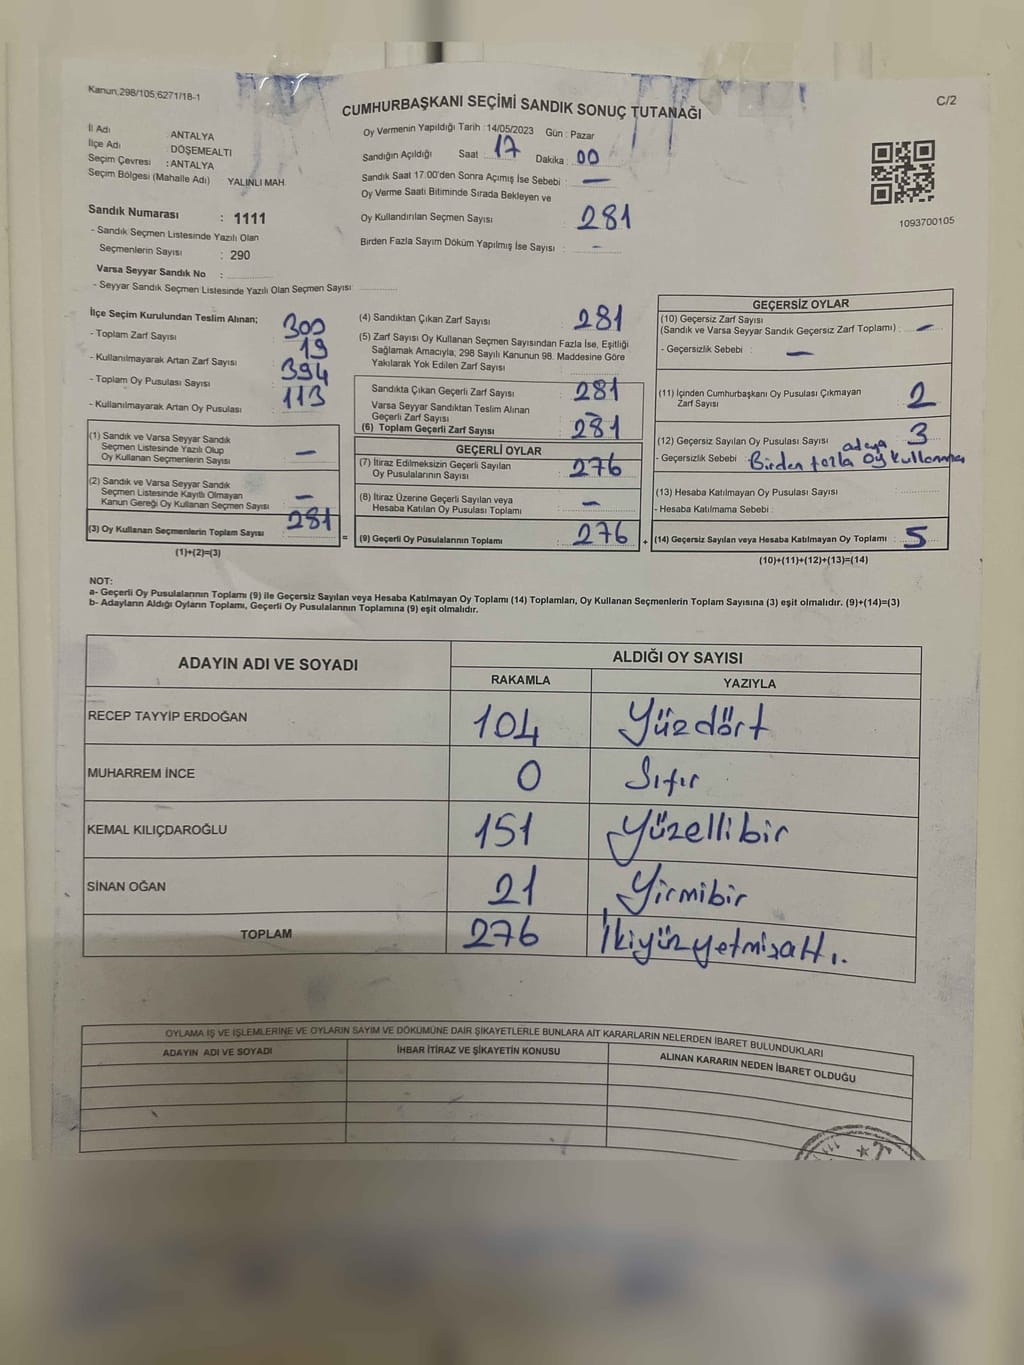 Kanun:298/105,6271/18-1
C/2
CUMHURBAŞKANI SEÇİMİ SANDIK SONUÇ TUTANAĞI
İl Adı : ANTALYA
İlçe Adı : DÖŞEMEALTI
Seçim Çevresi : ANTALYA
Seçim Bölgesi (Mahalle Adı) YALINLI MAH.
Sandık Numarası : 1111
- Sandık Seçmen Listesinde Yazılı Olan
Seçmenlerin Sayısı : 290
Varsa Seyyar Sandık No :
- Seyyar Sandık Seçmen Listesinde Yazılı Olan Seçmen Sayısı:
Oy Vermenin Yapıldığı Tarih :14/05/2023 Gün : Pazar
Sandığın Açıldığı Saat : 17 Dakika : 00
Sandık Saat 17:00'den Sonra Açımış İse Sebebi : —
Oy Verme Saati Bitiminde Sırada Bekleyen ve
Oy Kullandırılan Seçmen Sayısı : 281
Birden Fazla Sayım Döküm Yapılmış İse Sayısı : -
1093700105
İlçe Seçim Kurulundan Teslim Alınan;
- Toplam Zarf Sayısı : 300
- Kullanılmayarak Artan Zarf Sayısı : 19
- Toplam Oy Pusulası Sayısı : 394
- Kullanılmayarak Artan Oy Pusulası : 113
(1) Sandık ve Varsa Seyyar Sandık
Seçmen Listesinde Yazılı Olup
Oy Kullanan Seçmenlerin Sayısı : —
(2) Sandık ve Varsa Seyyar Sandık
Seçmen Listesinde Kayıtlı Olmayan
Kanun Gereği Oy Kullanan Seçmen Sayısı : —
(3) Oy Kullanan Seçmenlerin Toplam Sayısı : 281
(1)+(2)=(3)
=
(4) Sandıktan Çıkan Zarf Sayısı : 281
(5) Zarf Sayısı Oy Kullanan Seçmen Sayısından Fazla İse, Eşitliği
Sağlamak Amacıyla; 298 Sayılı Kanunun 98. Maddesine Göre
Yakılarak Yok Edilen Zarf Sayısı :
Sandıkta Çıkan Geçerli Zarf Sayısı : 281
Varsa Seyyar Sandıktan Teslim Alınan
Geçerli Zarf Sayısı : —
(6) Toplam Geçerli Zarf Sayısı : 281
GEÇERLİ OYLAR
(7) İtiraz Edilmeksizin Geçerli Sayılan
Oy Pusulalarının Sayısı : 276
(8) İtiraz Üzerine Geçerli Sayılan veya
Hesaba Katılan Oy Pusulası Toplamı : —
(9) Geçerli Oy Pusulalarının Toplamı : 276
+
GEÇERSİZ OYLAR
(10) Geçersiz Zarf Sayısı
(Sandık ve Varsa Seyyar Sandık Geçersiz Zarf Toplamı) : —
- Geçersizlik Sebebi : —
(11) İçinden Cumhurbaşkanı Oy Pusulası Çıkmayan
Zarf Sayısı : 2
(12) Geçersiz Sayılan Oy Pusulası Sayısı : 3
- Geçersizlik Sebebi : Birden fazla adaya Oy kullanma
(13) Hesaba Katılmayan Oy Pusulası Sayısı :
- Hesaba Katılmama Sebebi :
(14) Geçersiz Sayılan veya Hesaba Katılmayan Oy Toplamı : 5
(10)+(11)+(12)+(13)=(14)
NOT:
a- Geçerli Oy Pusulalarının Toplamı (9) ile Geçersiz Sayılan veya Hesaba Katılmayan Oy Toplamı (14) Toplamları, Oy Kullanan Seçmenlerin Toplam Sayısına (3) eşit olmalıdır. (9)+(14)=(3)
b- Adayların Aldığı Oyların Toplamı, Geçerli Oy Pusulalarının Toplamına (9) eşit olmalıdır.
ADAYIN ADI VE SOYADI
ALDIĞI OY SAYISI
RAKAMLA YAZIYLA
RECEP TAYYİP ERDOĞAN 104 Yüzdört
MUHARREM İNCE 0 Sıfır
KEMAL KILIÇDAROĞLU 151 Yüzellibir
SİNAN OĞAN 21 Yirmibir
TOPLAM 276 İkiyüzyetmişaltı.
OYLAMA İŞ VE İŞLEMLERİNE VE OYLARIN SAYIM VE DÖKÜMÜNE DAİR ŞİKAYETLERLE BUNLARA AİT KARARLARIN NELERDEN İBARET BULUNDUKLARI
ADAYIN ADI VE SOYADI İHBAR İTİRAZ VE ŞİKAYETİN KONUSU ALINAN KARARIN NEDEN İBARET OLDUĞU